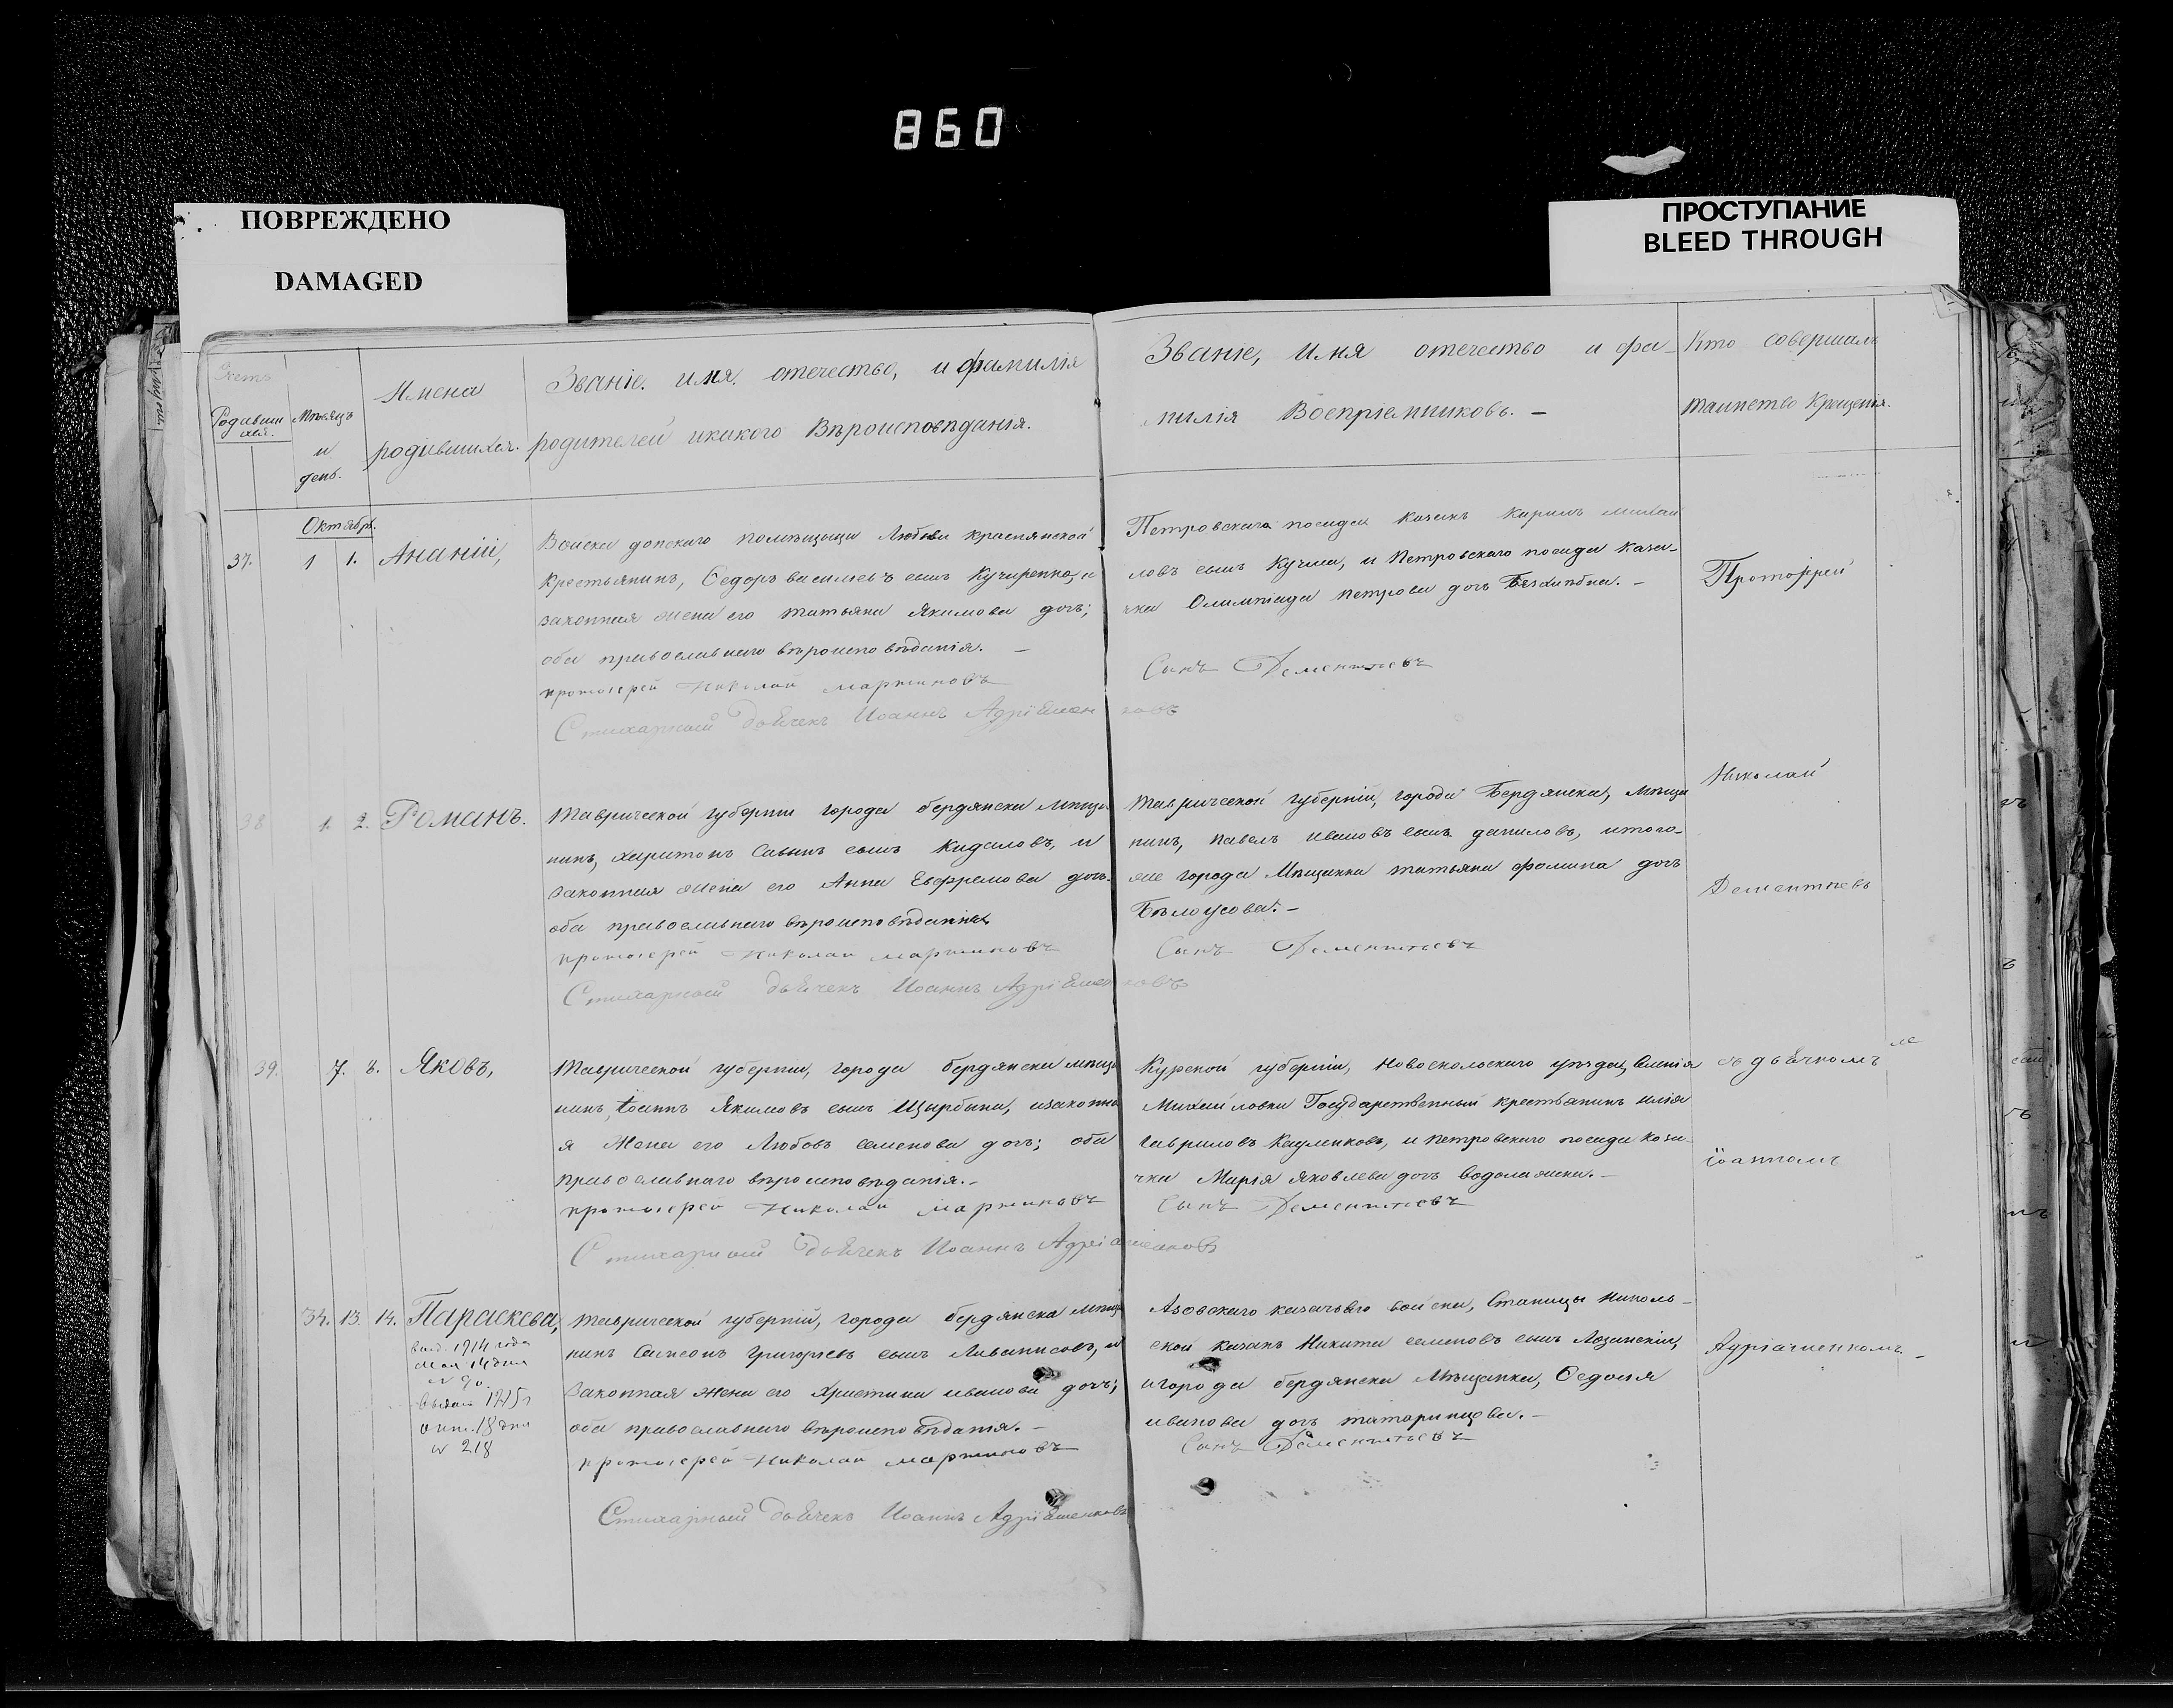 860
ПОВРЕЖДЕНО
DAMAGED
ПРОСТУПАНИЕ
BLEED THROUGH
Счетъ
Родивши
хся.
Мѣсяцъ
и
день.
Имена
родившихся.
Званіе. имя. отечество, и фамилія
родителей икакого Вѣроисповѣданія.
Званіе, имя отечество и фа-
милія Воспріемниковъ. -
Кто совершалъ
таинство Крещенія.
Октябрь.
37. 1 1. Ананій,
Войска донского помѣщицы Любови краснянской
крестьянинъ, Ѳедоръ васильевъ сынъ Кучеренко, и
законная жена его татьяна Якимова дочь;
оба православнаго вѣроисповѣданія. -
протоіерей Николай мартиновъ
Стихарный дьячекъ Иоаннъ Адріяшенковъ
Петровскаго посада козакъ Кирилъ михаи
ловъ сынъ Кучма, и Петровскаго посада каза-
чка Олимпіада петрова дочь -
Сынъ Дементьевъ
Протоіерей
38 1. 2. Романъ.
таврической губерніи города бердянска мѣща
нинъ, харитонъ Савинъ сынъ Кидаловъ, и
законная жена его Анна Евфремова дочь.
оба православнаго вѣроисповѣданія
протоіерей Николай мартиновъ
Стихарный дьячекъ Иоаннъ Адріяшенковъ
таврической губерніи, города Бердянска, мѣща
нинъ, павелъ ивановъ сынъ даниловъ, итого-
же города Мѣщанка татьяна фомина дочь
Бѣлоусова. -
Сынъ Дементьевъ
Николай
Дементьевъ
39. 7. 8. Яковъ,
таврической губерніи, города бердянска мѣща
нинъ, іоаннъ Якимовъ сынъ Щербина, изаконна
я жена его Любовь семенова дочь; оба
православнаго вѣроисповѣданія. -
протоіерей Николай мартиновъ
Стихарный дьячекъ Иоаннъ Адріяшенковъ
Курской губерніи, Новоскольского уѣзда,
Михайловки Государственный крестьянинъ илія
гавриловъ и петровскаго посада каза-
чка Марія Яковлева дочь водолажска. -
Сынъ Дементьевъ
съ дьячкомъ
іоанномъ
34. 13. 14. Параскева,
выд. 1914 года
мая 14 дня
№ 90
1915 г
окт. 18 дня
№ 218
таврической губерній, города бердянска мѣща
нинъ Симеонъ григорьевъ сынъ Ливанисовъ, и
законная жена его христина иванова дочь;
оба православнаго вѣроисповѣданія. -
протоіерей Николай мартиновъ
Стихарный дьячекъ Иоаннъ Адріяшенковъ
Азовскаго казачьяго войска, Станицы николь-
ской казакъ Никита семеновъ сынъ Лозинскій,
игорода бердянска Мѣщанка, Ѳедосія
иванова дочь татаринцева. -
Сынъ Дементьевъ
Адріашенкомъ. -